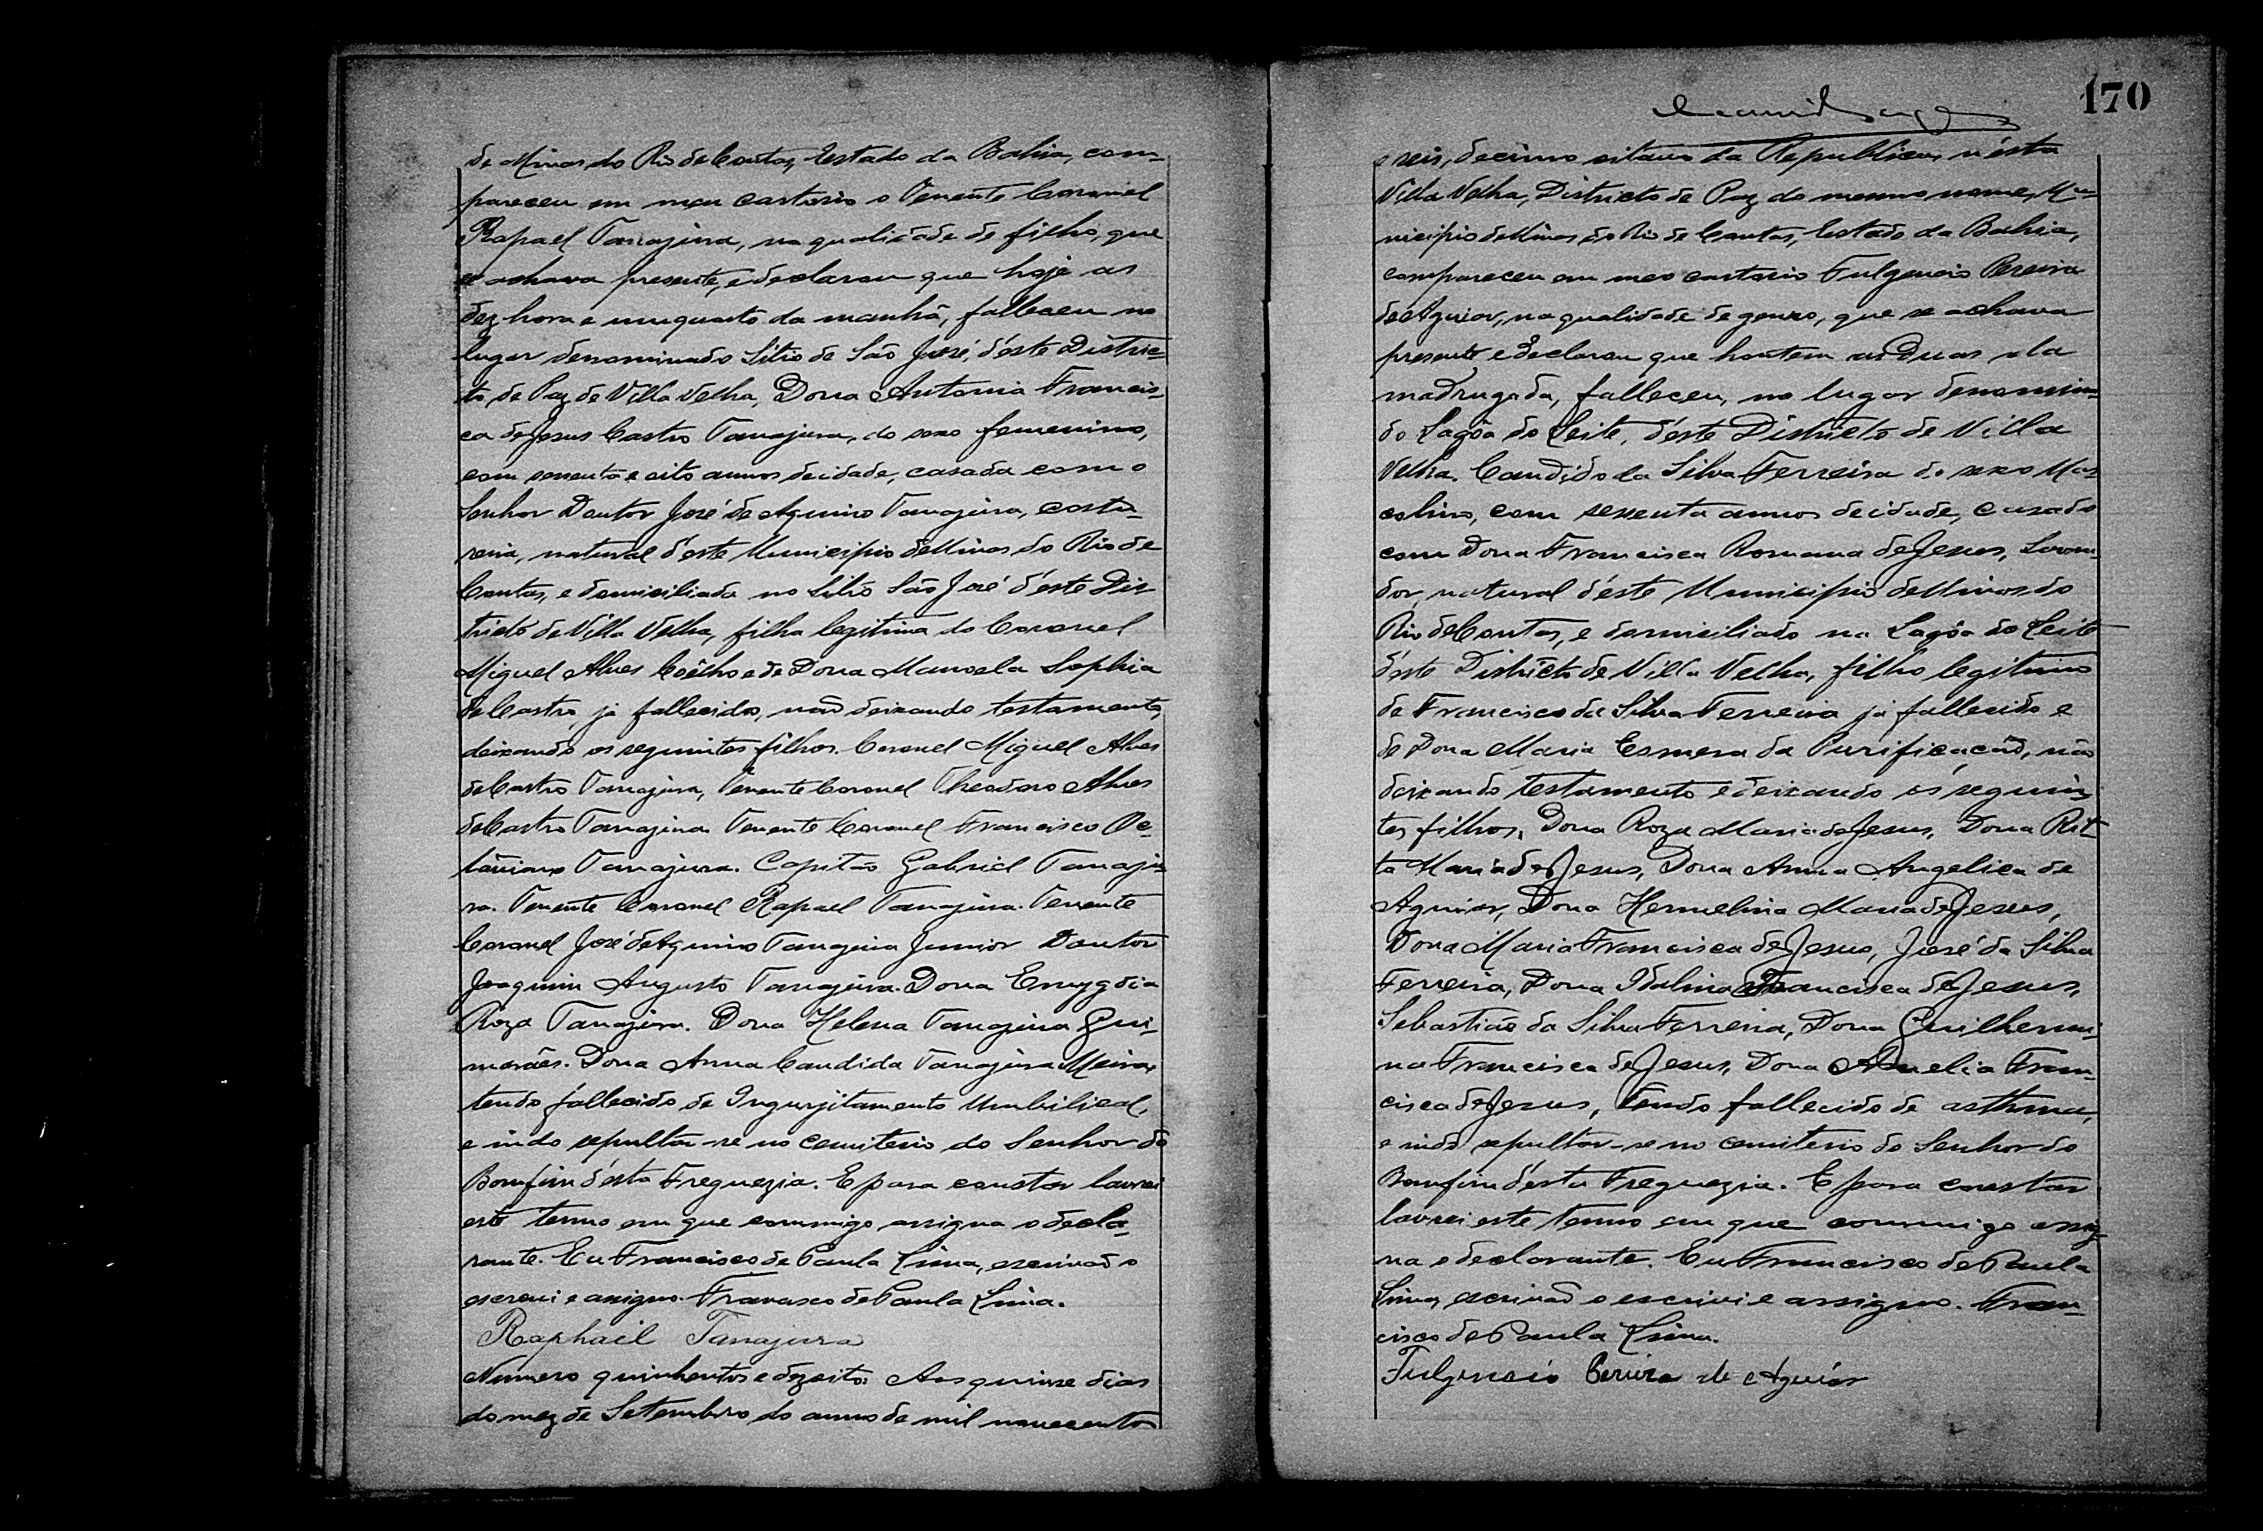 de Minas do Rio de Contas, Estado da Bahia, com-
pareceu em meu cartorio o Tenente Coronel
Rapael Tanajura, na qualidade de filho, que
se achava presente, e declarou que hoje as
dez hora e um quarto da manhã, falleceu no
lugar denominado Sitio de São José, d'este Distric-
to de Paz de Villa Velha, Dona Antonia Francis-
ca de Jesus Castro Tanajura, do sexo femenino,
com sessenta e oito annos de idade, casada com o
Senhor Doutor José de Aquino Tanajura, costu-
reira, natural d'este Municipio de Minas do Rio de
Contas, e domiciliada no Sitio São José d'este Dis-
tricto de Villa Velha, filha legitima do Coronel
Miguel Alves Coêlho e de Dona Manoela Sophia
de Castro, ja fallecidos, não deixando testamento,
deixando os seguintes filhos. Coronel Miguel Alves
de Castro Tanajura, Tenente Coronel Theodoro Alves
de Castro Tanajura. Tenente Coronel Francisco Oc-
taviano Tanajura. Capitão Gabriel Tanaju-
ra. Tenente Coronel Rapael Tanajura. Tenente
Coronel José de Aquino Tanajura Junior Doutor
Joaquim Augusto Tanajura. Dona Emygdia
Roza Tanajura. Dona Helena Tanajura Gui-
marães. Dona Anna Candida Tanajura Meira,
tendo fallecido de Ingurjitamento Umbilical,
e indo sepultar-se no cemiterio do Senhor do
Bomfim d'esta Freguezia. E para constar lavrei
este termo em que commigo assigna o decla-
rante. Eu Francisco de Paula Lima, escrivão o
escrevi e assigno. Francisco de Paula Lima.
Raphael Tanajura
Numero quinhentos e dezoito. Aos quinse dias
do mez de Setembro do anno de mil novecentos
170
e seis, decimo oitavo da Republica, n'esta
Villa Velha, Districto de Paz do mesmo nome, Mu-
nicipio de Minas do Rio de Contas, Estado da Bahia,
compareceu em meo cartorio Fulgencio Pereira
de Aguiar, na qualidade de genro, que se achava
presente e declarou que hontem as duas da
madrugada, falleceu, no lugar denomina-
do Lagôa do Leite, d'este Districto de Villa
Velha. Candido da Silva Ferreira do sexo Mas-
colino, com sessenta annos de idade, casado
com Dona Francisca Romana de Jesus, Lavra-
dor, natural d'este Municipio de Minas do
Rio de Contas, e domiciliado na Lagôa do Leite
d'este Districto de Villa Velha, filho legitimo
de Francisco da Silva Ferreira já fallecido e
de Dona Maria Esmera da Purificação, não
deixando testamento e deixando os seguin-
tes filhos, Dona Roza Maria de Jesus, Dona Rit-
ta Maria de Jesus, Dona Anna Angelica de
Aguiar, Dona Hermelina Maria de Jesus,
Dona Maria Francisca de Jesus, José da Silva
Ferreira, Dona Idalina Francisca de Jesus,
Sebastião da Silva Ferreira, Dona Guilhermi-
na Francisca de Jesus, Dona Amelia Fran-
cisca de Jesus, tendo fallecido de asthma,
e indo sepultar-se no cemiterio do Senhor do
Bomfim d'esta Freguezia. E para constar
lavrei este termo em que commigo assig-
na o declarante. Eu Francisco de Paula
Lima, escrivão o escrivi e assigno. Fran-
cisco de Paula Lima.
Fulgencio Pereira de Aguiar